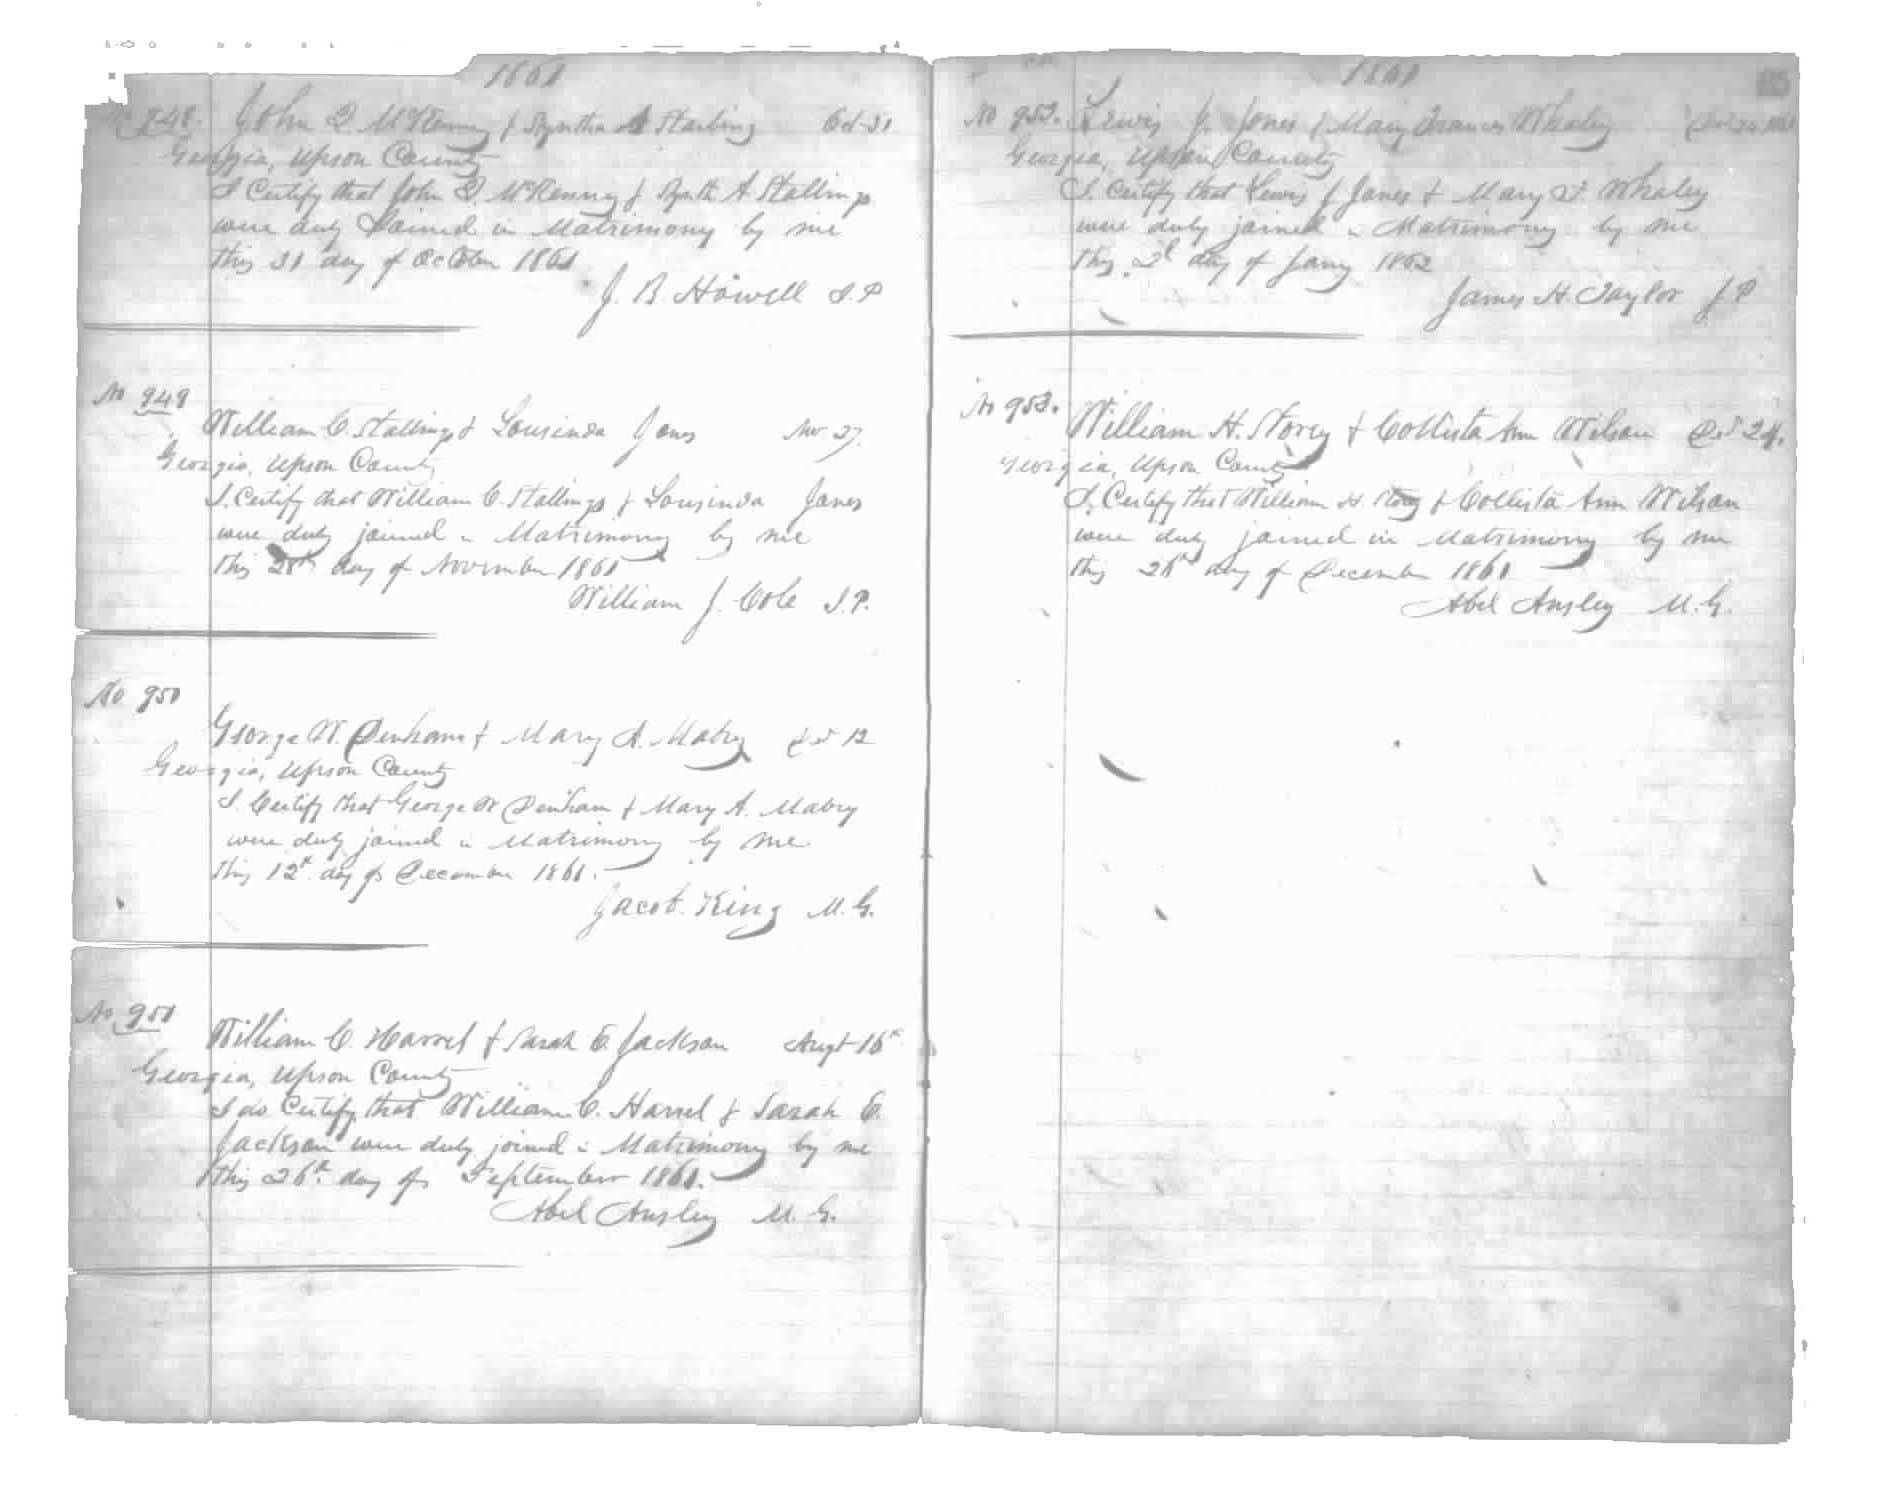 1861
No 948. John Q McKenney & Syntha A Starling Oct 31
Georgia, Upson County
I Certify that John Q McKenney & Syntha A Stallings
were duly Joined in Matrimony by me
this 31 day of October 1861
J. B Howell J. P
No 949
William C. Stallings & Lousinda Jones Nov 27.
Georgia, Upson County
I Certify that William C. Stallings & Lousinda Jones
were duly joined in Matrimony by me
this 28th day of November 1861
William J. Cole J. P.
No 950
George W. Denham & Mary A. Mabry Dec 12
Georgia, Upson County
I Certify that George W Denham & Mary A. Mabry
were duly joined in Matrimony by me
this 12th day of December 1861.
Jacob. King M. G.
No 951
William C. Harrel & Sarah E. Jackson Augt 16th
Georgia, Upson County
I do Certify that William C. Harrel & Sarah E.
Jackson were duly joined in Matrimony by me
this 26th day of September 1861.
Abel Ansley M. G.
1861
No 952. Lewis J. Jones & Mary Frances Whaley
Georgia, Upson County
I Certify that Lewis J Jones & Mary F. Whaley
were duly joined in Matrimony by me
this 2d day of Jany 1862
James H. Taylor J. P
No 953.
William H. Storey & Collista Ann Wilson Dec 24.
Georgia, Upson County
I Certify that William H. Storey & Collista Ann Wilson
were duly joined in Matrimony by me
this 26th day of December 1861
Abel Ansley M. G.